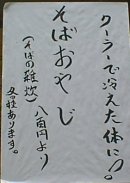 クーラーで冷えた体に!?。
そばおやじ
(そばの雑炊)
八百円より
あります。